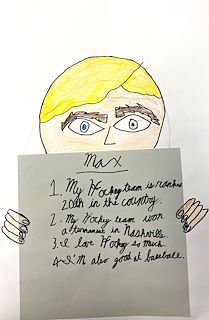 Max
1. My Hockey team is ranked
20th in the country.
2. My Hockey team won
a tournament in Nashville.
3. I love Hockey so much.
4. I'm also good at baseball.